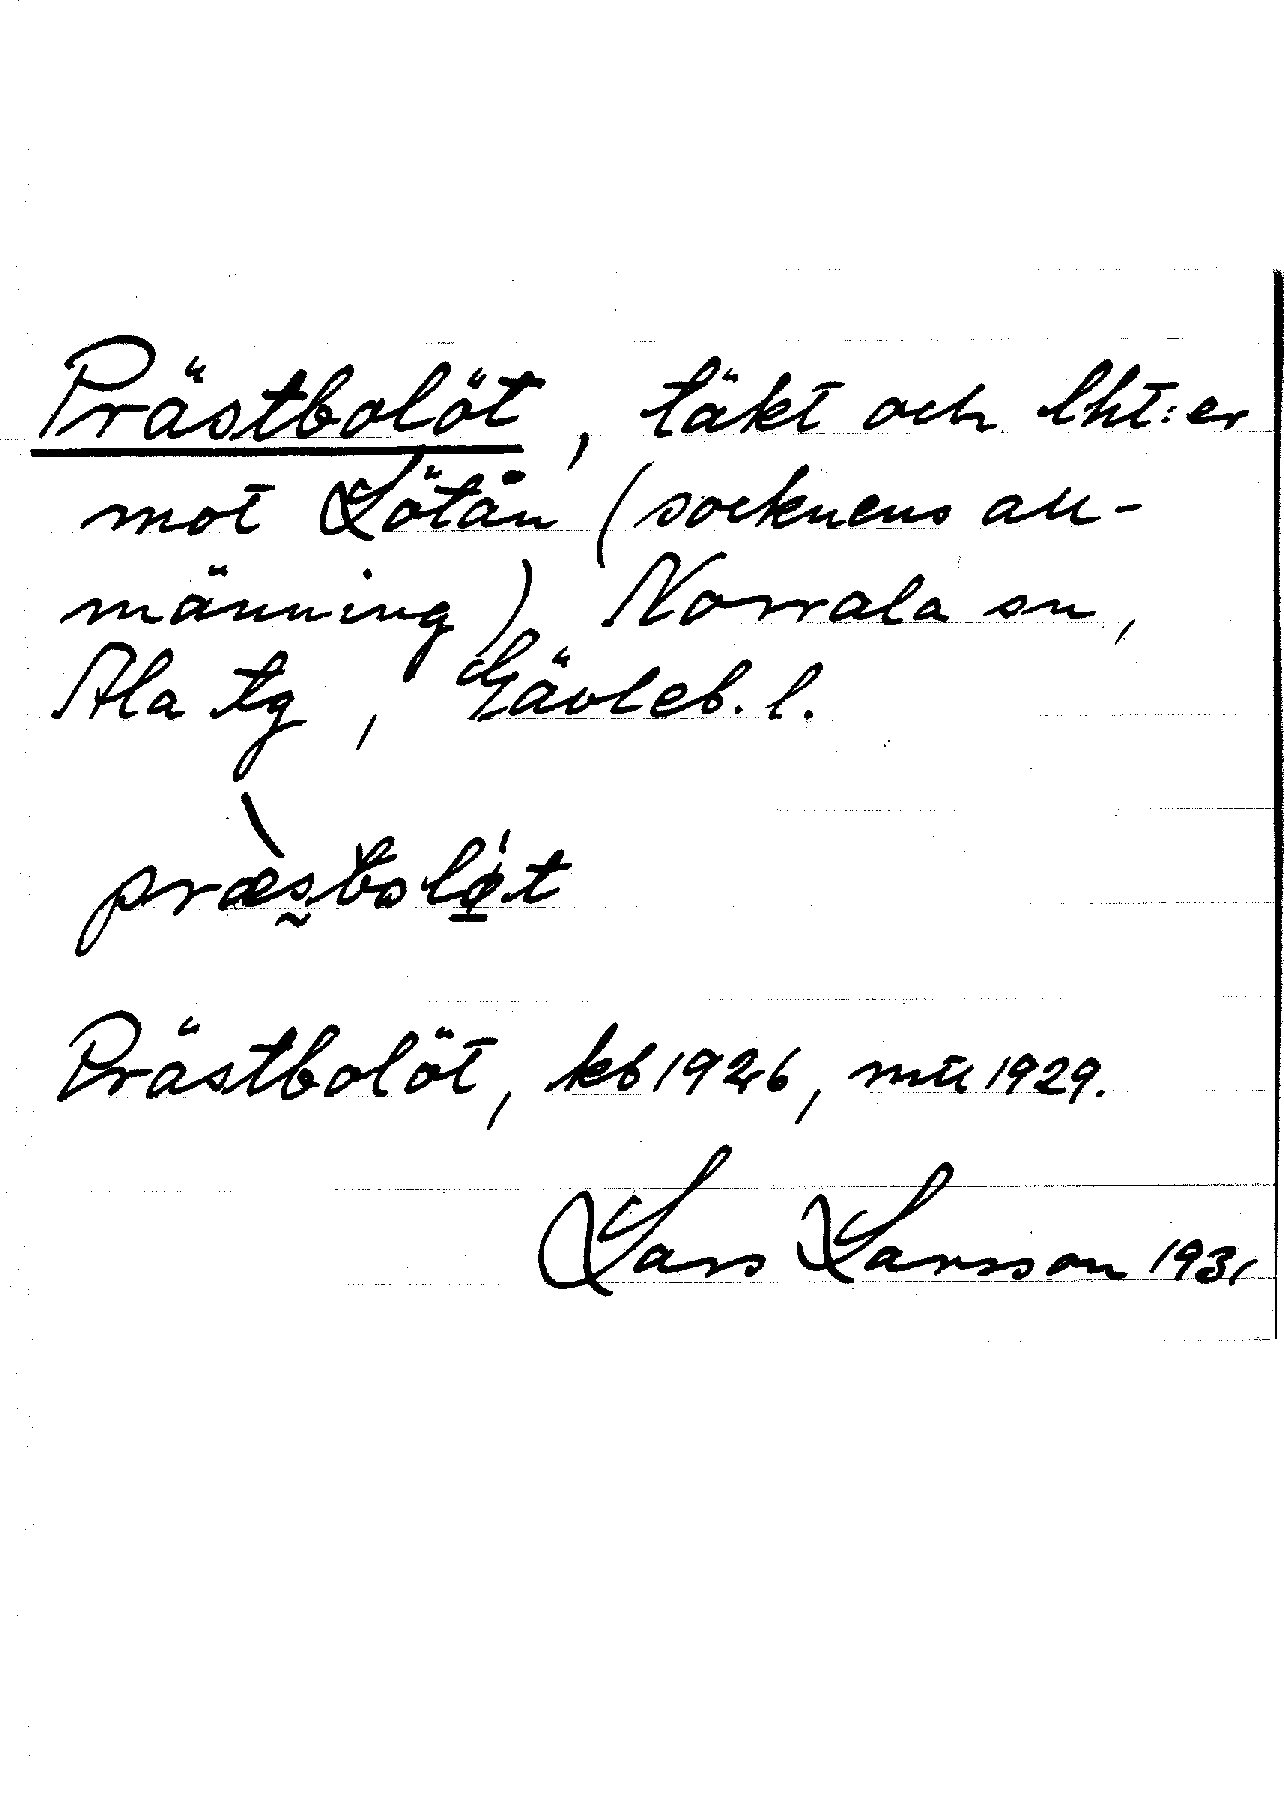 Prästbolöt, täkt och lht:er
mot Lötån (socknens all-
männing) Norrala sn,
Ala tg, Gävleb. l.
præsbolöt
Prästbolöt, kb 1926, mtl 1929.
Lars Larsson 1931